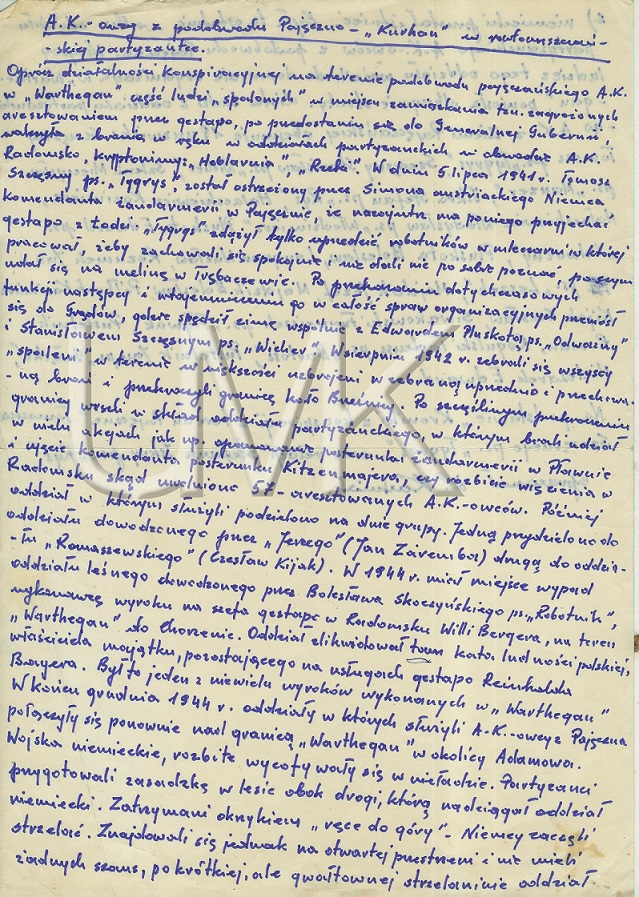 A.K.-owcy z podobwodu Pajęczno - "Kurhan" w radomszczań-
skiej partyzantce.
Oprócz działalności konspiracyjnej na terenie podobwodu pajęczańskiego A.K.
w "Warthegau" część ludzi "spalonych" w miejscu zamieszkania tzn. zagrożonych
aresztowaniem przez gestapo, po przedostaniu się do Generalnej Gubernii,
walczyła z bronią w ręku w oddziałach partyzanckich w obwodzie A.K.
Radomsko, kryptonimy: "Hoblarnia" "Rzeki". W dniu 5 lipca 1941 r. Tomasz
Szczęsny ps. "Tygrys" został ostrzeżony przez Simona austriackiego Niemca
komendanta żandarmerii w Pajęcznie, że nazajutrz ma po niego przyjechać
gestapo z Łodzi. "Tygrys" zdążył tylko uprzedzić robotników w mleczarni w której
pracował, żeby zachowali się spokojnie i nie dali nic po sobie poznać, po czym
udał się na melinę w Trębaczewie. Po przekazaniu dotychczasowych
funkcji następcy i wtajemniczeniu go w całość spraw organizacyjnych przeniósł
się do Gajdów, gdzie spędził zimę wspólnie z Edwardem Pluskotą ps. "Odważny"
i Stanisławem Szczęsnym ps. "Wicher". W sierpniu 1942 r. zebrali się wszyscy
"spaleni" w terenie w większości uzbrojeni w zebraną uprzednio i przechowa-
-ną broń i przekroczyli granicę koło Brzeźnicy. Po szczęśliwym przekroczeniu
granicy weszli w skład oddziału partyzanckiego, w którym brali udział
w wielu akcjach jak np. opanowanie posterunku żandarmerii w Pławnie
i ujęcie komendanta posterunku Kitzenmajera, czy rozbicie więzienia w
Radomsku skąd uwolniono 57-aresztowanych A.K.-owców. Później
oddział w którym służyli podzielono na dwie grupy. Jedną przydzielono do
oddziału dowodzonego przez "Jerzego" (Jan Zaremba) drugą do oddzia-
-łu "Romaszewskiego" (Czesław Kijak). W 1944 r. miał miejsce wypad
oddziału leśnego dowodzonego przez Bolesława Skoczyńskiego ps. "Robotnik",
wykonawcę wyroku na szefa gestapo w Radomsku Willi Bergera, na teren
"Warthegau" do Chorzenic. Oddział zlikwidował tam kata ludności polskiej,
właściciela majątku, pozostającego na usługach gestapo Reinholda
Bayera. Był to jeden z niewielu wyroków wykonanych w "Warthegau"
W końcu grudnia 1944 r. oddziały w których służyli A.K.-owcy z Pajęczna
połączyły się ponownie nad granicą "Warthegau" w okolicy Adamowa.
Wojska niemieckie, rozbite wycofywały się w nieładzie. Partyzanci
przygotowali zasadzkę w lesie obok drogi, którą nadciągał oddział
niemiecki. Zatrzymani okrzykiem "ręce do góry" - Niemcy zaczęli
strzelać. Znajdowali się jednak na otwartej przestrzeni i nie mieli
żadnych szans, po krótkiej, ale gwałtownej strzelaninie oddział
UMK